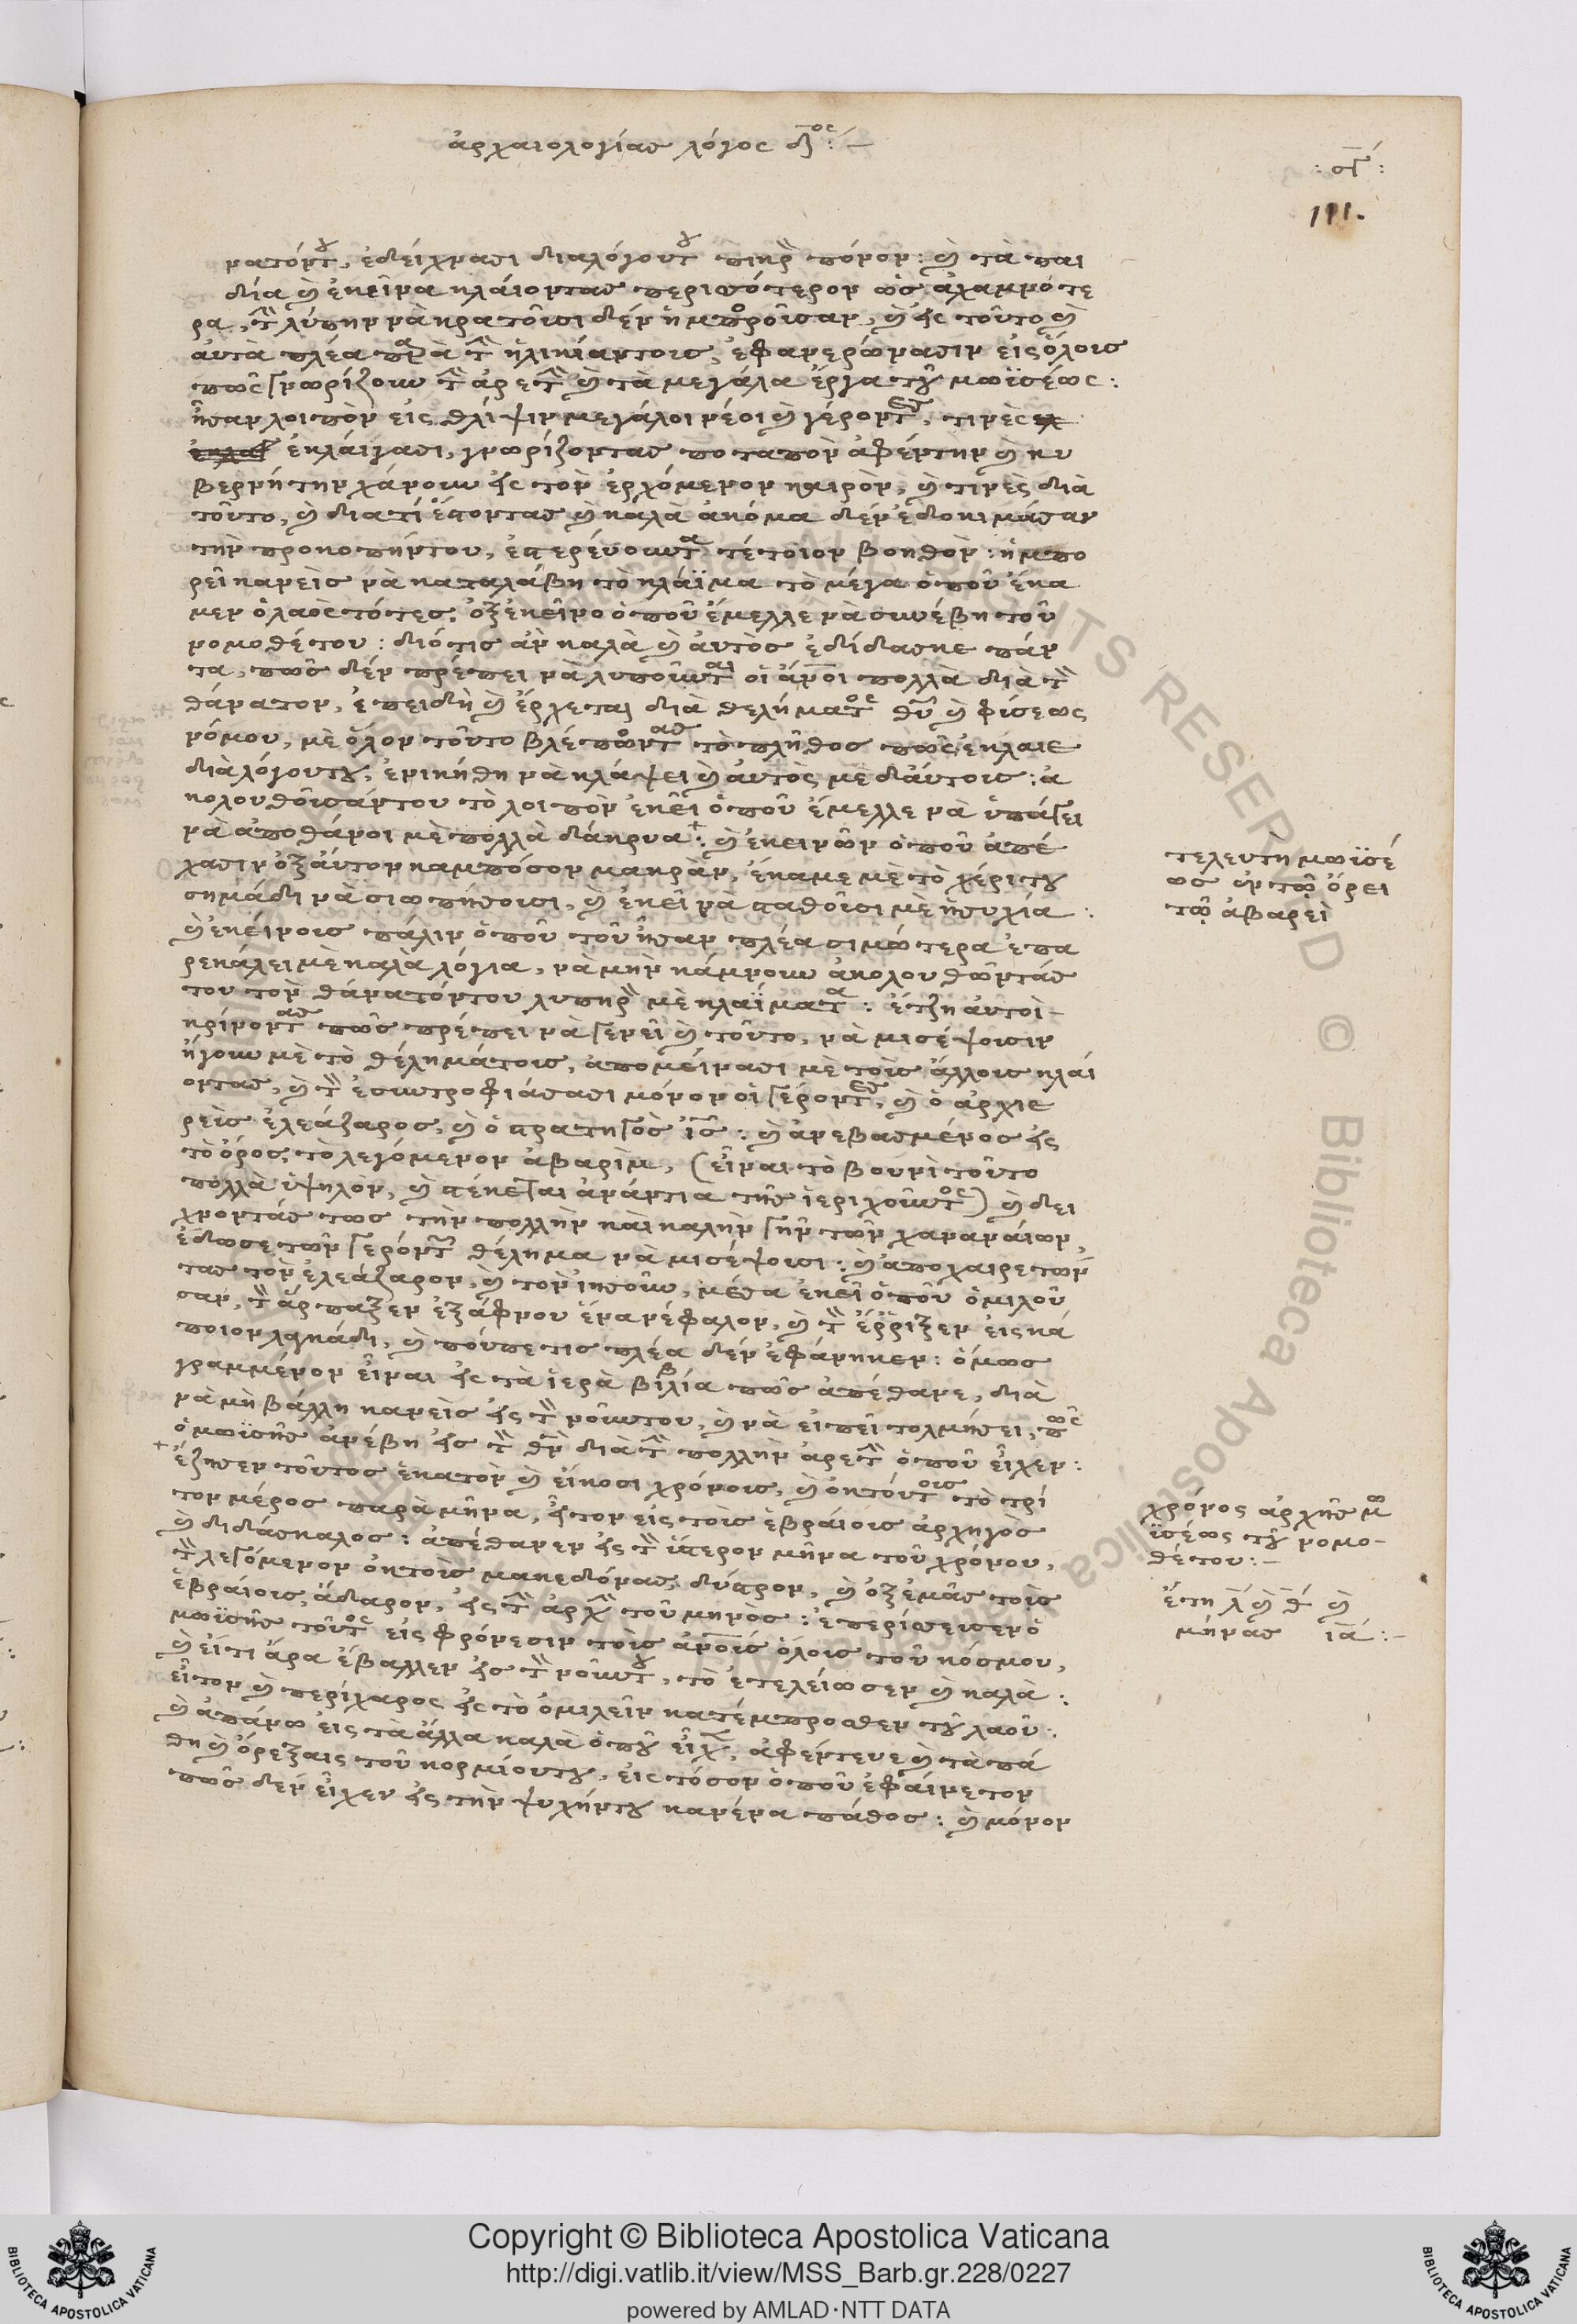 ἀρχαιολογίας λόγος δος:—
111.
νατόντου, ἐδείχνασι διαλόγουτου πικρὴν πόνον: καὶ τὰ παι
δία καὶ ἐκεῖνα κλάιοντας περισσότερον ὡς ἀχαμνότε
ρα, τὴν λύπην νὰ κρατοῦσι δὲν ἠμποροῦσαν, καὶ εἰς τοῦτο καὶ
ἀυτὰ πλέα παρὰ τὴν ἡλικίαντους, ἐφανερώνασιν εἰς ὅλους
πῶς γνωρίζουν τὴν ἀρετὴν καὶ τὰ μεγάλα ἔργα τοῦ μωϋσέως:
ἦσαν λοιπὸν εἰς θλίψιν μεγάλοι νέοι καὶ γέροντες, τινὲς
ἐκλάιγασι, γνωρίζοντας ποταπὸν ἀφέντην καὶ κυ
βερνήτην χάνουν εἰς τὸν ἐρχόμενον καιρὸν, καὶ τινὲς διὰ
τοῦτο, καὶ διατί ἔστοντας καὶ καλὰ ἀκόμα δὲν ἐδοκιμάσαν
τὴν προκοπήντου, ἐστερέυουνται τέτοιον βοηθὸν: ἠμπο
ρεῖ κανεὶς νὰ καταλάβη τὸ κλάϊμα τὸ μέγα ὁποῦ ἔκα
μεν ὁ λαὸς τότες, ὀξ ἐκεῖνο ὁποῦ ἔμελλε νὰ συνέβη τοῦ
νομοθέτου: διότις ἂν καλὰ καὶ ἀυτὸς ἐδίδασκε πάν
τα, πῶς δὲν πρέπει νὰ λυποῦνται οἱ ἄνοι πολλὰ διὰ τὸν
θάνατον, ἐπειδὴ καὶ ἔρχεται διὰ θελήματος θῦ καὶ φύσεως
νόμου, μὲ ὅλον τοῦτο βλέπωντας τὸ πλῆθος πῶς ἔκλαιε
διὰ λόγουτου, ἐνικήθη νὰ κλάψει καὶ ἀυτὸς μὲ δἀυτους: ἀ
κολουθοῦσάντου τὸ λοιπὸν ἐκεῖ ὁποῦ ἔμελλε νὰ ὑπάγει
νὰ ἀποθάνοι μὲ πολλὰ δάκρυα: καὶ ἐκεινῶν ὁποῦ ἀπέ
χασιν ὀξάυτον καμπόσον μακρὰν, ἔκαμε μὲ τὸ χέριτου
σημάδι νὰ σιωπήσουσι, καὶ ἐκεῖ νὰ σταθοῦσι μὲ ἡσυχία:
καὶ ἐκείνους πάλιν ὁποῦ τοῦ ἦσαν πλέα σιμώτερα ἐπα
ρεκάλει μὲ καλὰ λόγια, νὰ μὴν κάμνουν ἀκολουθῶντάς
του τὸν θάνατόντου λυπηρὸν μὲ κλαΐματα: ἔτζη ἀυτοὶ
κρίνοντας πῶς πρέπει νὰ γενεῖ καὶ τοῦτο, νὰ μισέψουσιν
ἤγουν μὲ τὸ θέλημάτους, ἀπομείνασι μὲ τοὺς ἄλλους κλάι
οντας, καὶ τὸν ἐσυντροφιάσασι μόνον οἱ γέροντες, καὶ ὁ ἀρχιε
ρεὺς ἐλεάζαρος, καὶ ὁ στρατηγὸς ἰς: καὶ ἀνεβασμένος εἰς
τὸ ὄρος, τὸ λεγόμενον ἀβαρὶμ, (εἶναι τὸ βουνὶ τοῦτο
πολλὰ ὑψηλὸν, καὶ στέκεται ἀνάντια τῆς ἱεριχοῦντος) καὶ δεί
χνοντάς τως τὴν πολλὴν κὰι καλὴν γῆν τῶν χαναναίων,
ἔδωσε τῶν γερόντων θέλημα νὰ μισέψουσι: καὶ ἀποχαιρετῶν
τας τὸν ἐλεάζαρον, καὶ τὸν ἰησοῦν, μέσα ἐκεῖ ὁποῦ ὁμιλοῦ
σαν, τὸν ἅρπαξεν ἐξάφνου ἕνα νέφαλον, καὶ τὸν ἔρριξεν εἰς κά
ποιον λαγκάδι, καὶ πούπετις πλέα δὲν ἐφάνηκεν: ὅμως
γραμμένον εἶναι εἰς τὰ ἱερὰ βιβλία πῶς ἀπέθανε, διὰ
νὰ μὴ βάλλη κανεὶς εἰς τὸν νοῦντου, καὶ νὰ εἰπεῖ τολμήσει, πῶς
ὁ μωϋσῆς ἀνέβη εἰς τὸν θν διὰ τὴν πολλὴν ἀρετὴν ὁποῦ εἶχεν:
ἔζησεν τοῦτος ἑκατὸν καὶ εἴκοσι χρόνους, καὶ ὀκτόυτους τὸ τρί
τον μέρος παρὰ μῆνα, ἦτον εἰς τοὺς ἑβράιους ἀρχηγὸς
καὶ διδάσκαλος: ἀπέθανεν εἰς τὸν ὕστερον μῆνα τοῦ χρόνου,
τὸν λεγόμενον ὀκτοὺς μακεδόνας, δύστρον, καὶ ὀξ ἐμᾶς τοὺς
ἑβράιους, ἄδαρον, εἰς τὴν ἀρχὴν τοῦ μηνὸς: ἐπερίσσευσεν ὁ
μωϋσῆς τοῦτος εἰς φρόνεσιν τοὺς ἀνους ὅλους τοῦ κόσμου,
καὶ εἴτι ἄρα ἔβαλλεν εἰς τὸν νοῦντου, τὸ ἐτελείωσεν καὶ καλὰ:
εἶτον καὶ περίχαρος εἰς τὸ ὁμιλεῖν κατέμπροσθεν τοῦ λαοῦ:
καὶ ἀπάνω εἰς τὰ ἄλλα καλὰ ὁποῦ εἶχεν, ἀφέντευε καὶ τὰ πά
θη καὶ ὄρεξαις τοῦ κορμίουτου, εἰς τόσον ὁποῦ ἐφάινετον
πῶς δὲν εἶχεν εἰς τὴν ψυχήντου κανένα πάθος: καὶ μόνον
τελευτὴ μωϋσέ
ως ἐν τῶ ὄρει
τῶ ἀβαρεὶ
χρόνος ἀρχῆς μω
ϋσέως τοῦ νομο-
θέτου:—
ἔτη λ καὶ θ καὶ
μῆνας ια:—
Copyright © Biblioteca Apostolica Vaticana
http://digi.vatlib.it/view/MSS_Barb.gr.228/0227
powered by AMLAD·NTT DATA